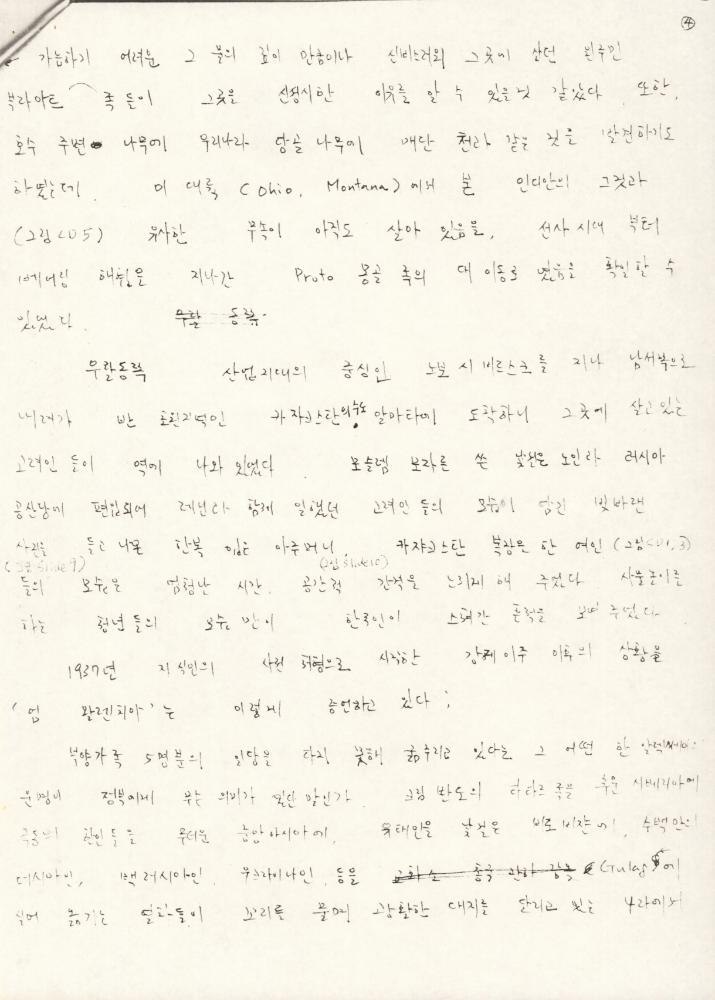 ④
가늠하기 어려운 그 물의 깊이 만큼이나 신비스러워 그곳에 살던 원주민
부라아트 족들이 그곳을 신성시한 이유를 알 수 있을 것 같았다. 또한,
호수 주변 나무에 우리나라 당골 나무에 매단 천과 같은 것을 발견하기도
하였는데 미 대륙 (Ohio, Montana)에서 본 인디안의 그것과
유사한 무속이 아직도 살아 있음을, 선사 시대 부터
해협을 지나간 Proto 몽골 족의 대 이동로 였음을 확일 할 수
있었다. 우랄 동쪽
우랄동쪽 산업지대의 중심인 노보 시비르스크를 지나 남서북으로
내려가 반 카자크스탄의 수도 알마타에 도착하니 그곳에 살고있는
고려인 들이 역에 나와 있었다. 모슬렘 모자를 쓴 노인과 러시아
공산당에 편입되어 레닌과 함께 일했던 고려인 들의 모습이 담긴 빛바랜
사진을 들고 나온 한복 입은 아주머니, 카쟈크스탄 복장을 한 여인
(그림 Slide 9) (그림 Slide 10)
들의 모습은 엄청난 시간. 공간적 간격을 느끼게 해 주었다. 사물놀이를
하는 청년들의 모습 만이 한국인이 스쳐간 흔적을 보여 주었다.
1937년 지식인의 사전 처형으로 시작한 강제 이주 이후의 상황을
'엄 왈렌치아'는 이렇게 증언하고 있다;
부양가족 5명분의 일당을 타지 못해 굶주리고 있다는 그 어떤 한
운명이 정부에게 무슨 의미가 있단 말인가. 크림 반도의 타타르 족을 추운 시베리아에
극동의 한인들을 무더운 중앙아시아에, 유태인을 비로비쟌에, 수백만의
러시아인, 백러시아인, 우크라이나인 등을 Gulag에
실어 옮기는 열차들이 꼬리를 물며 광활한 대지를 달리고 있는 나라에서